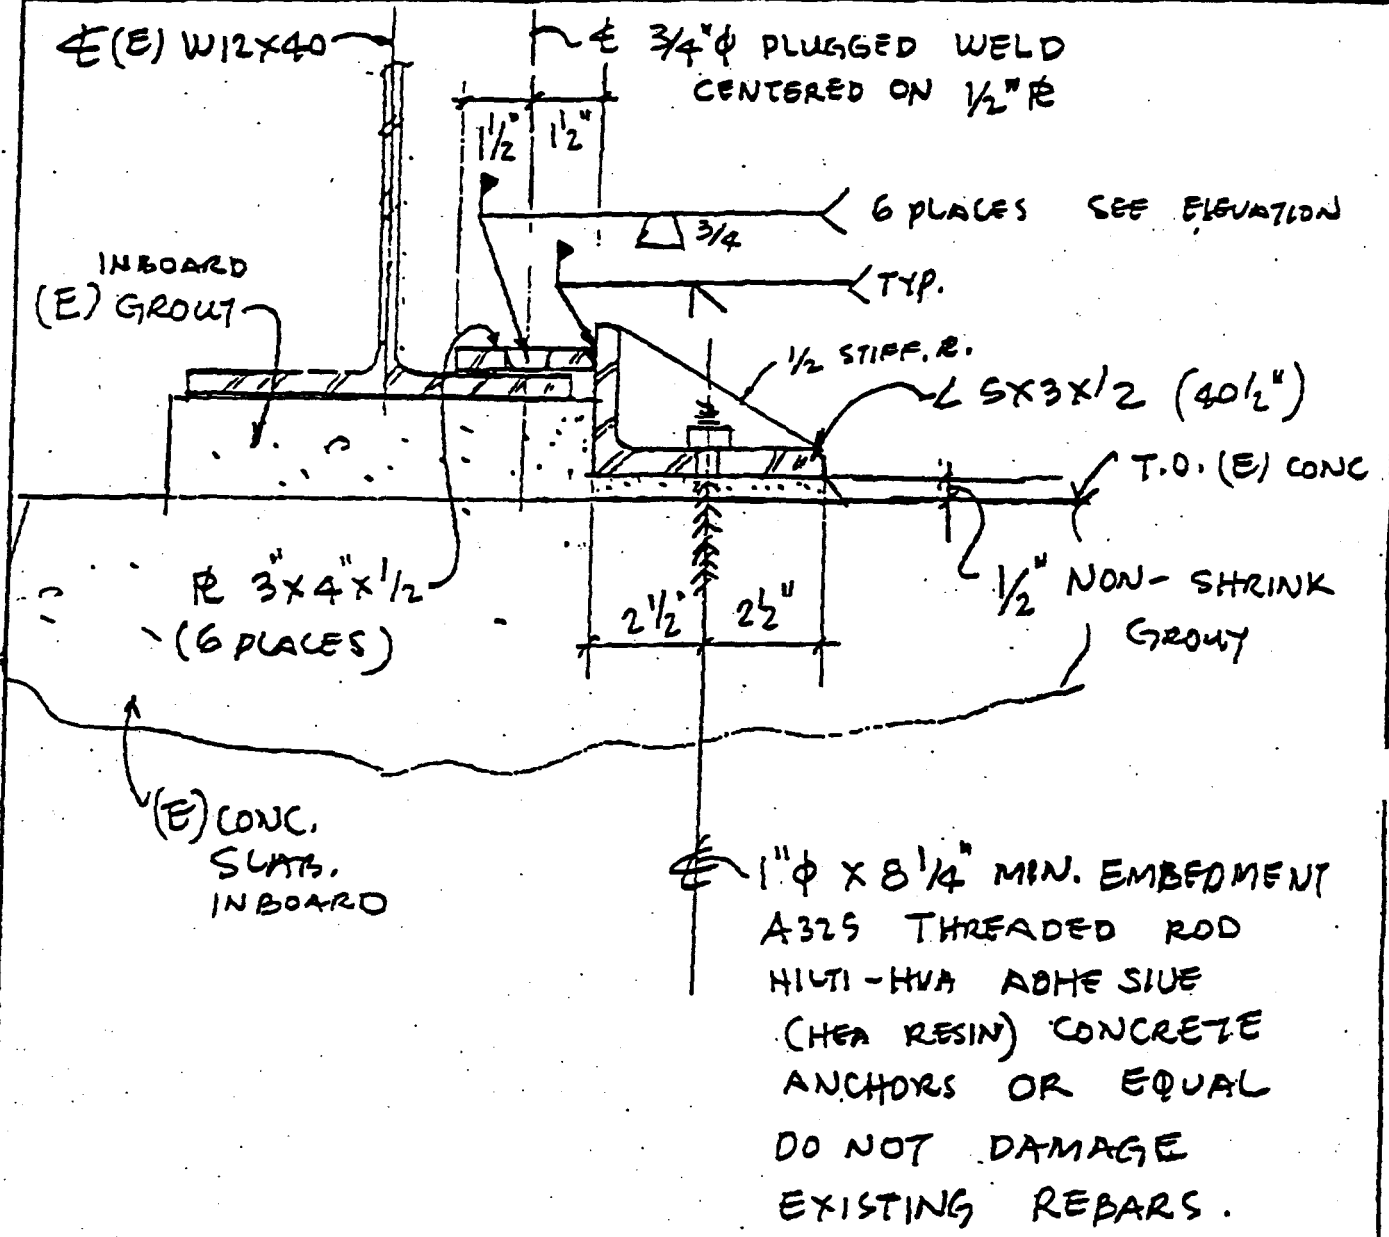 ℄ (E) W12X40
℄ 3/4"ϕ PLUGGED WELD
CENTERED ON 1/2" ℞
1 1/2"
1 1/2"
6 PLACES SEE ELEVATION
3/4
TYP.
INBOARD
(E) GROUT
1/2 STIFF. ℞.
∠ 5X3X1/2 (40 1/2")
T.O. (E) CONC
℞ 3"X4"X1/2
(6 PLACES)
2 1/2"
2 1/2"
1/2" NON-SHRINK
GROUT
(E) CONC.
SLAB.
INBOARD
℄ 1"ϕ X 8 1/4" MIN. EMBEDMENT
A325 THREADED ROD
HILTI-HVA ADHESIVE
(HEA RESIN) CONCRETE
ANCHORS OR EQUAL
DO NOT DAMAGE
EXISTING REBARS.